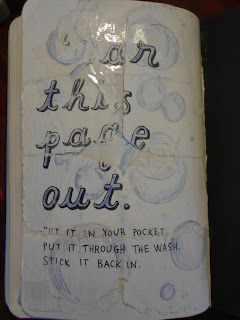 this
page
out.
PUT IT IN YOUR POCKET.
PUT IT THROUGH THE WASH.
STICK IT BACK IN.